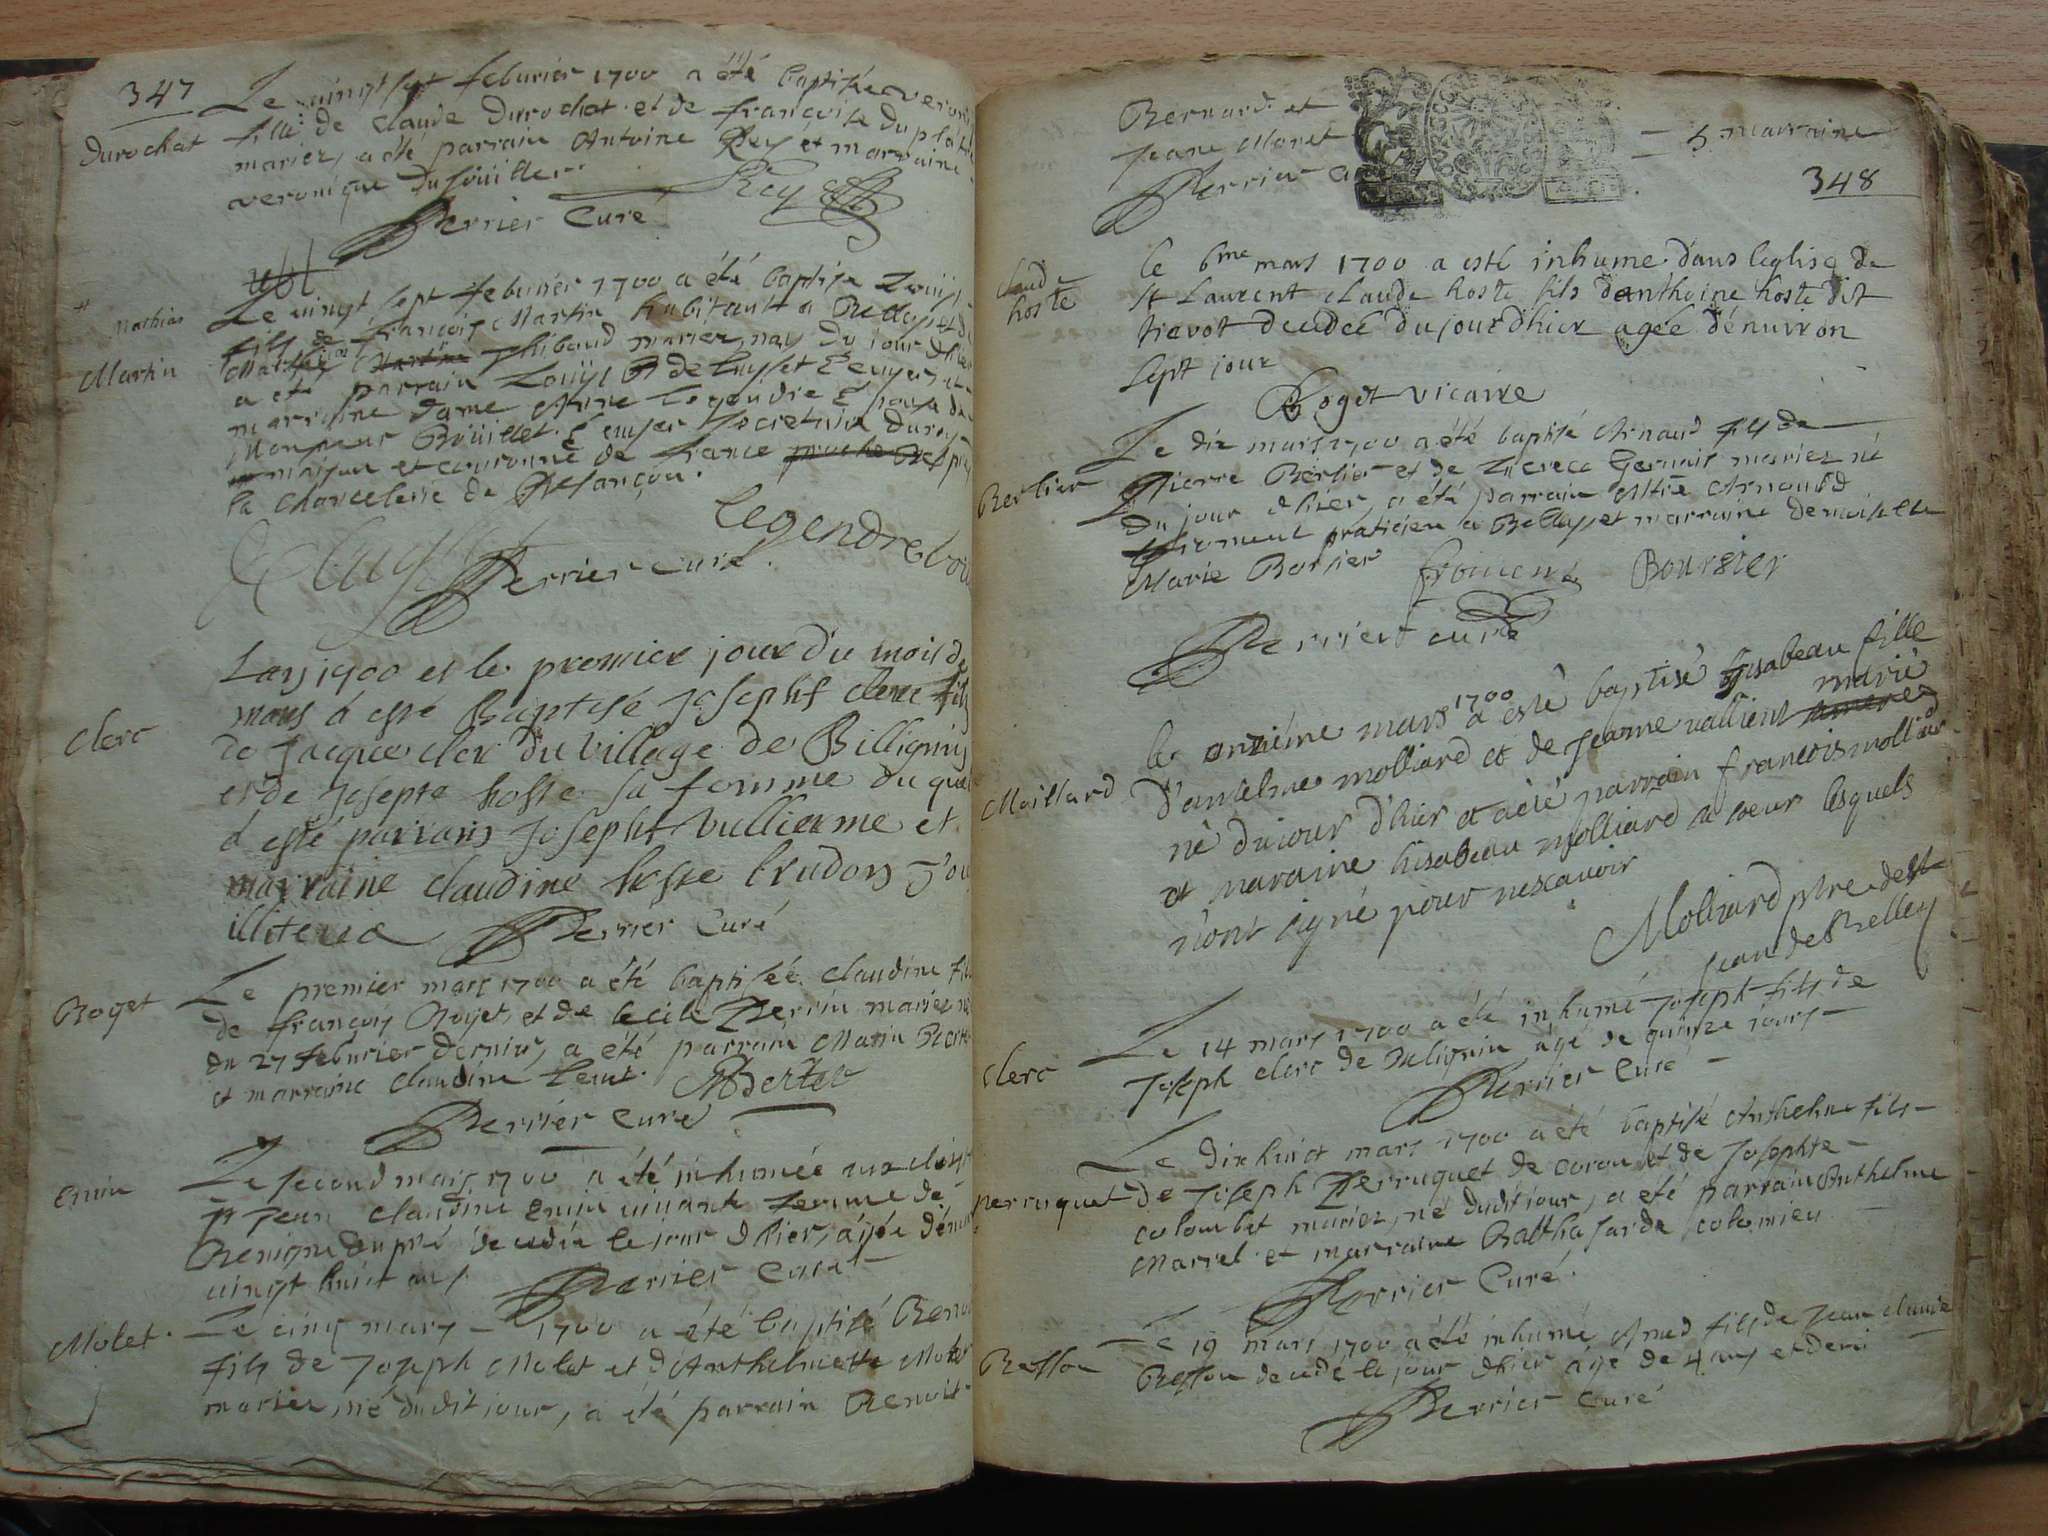 347
Le vingt sept feburier 1700 a été baptisée
Durochat
fille de claude Durochat et de françoise
mariez, a été parrain Antoine Rey et marraine
veronique
Rey
Perrier Curé
Le vingt sept feburier 1700 a été baptisé
Mathias
Martin
fils de françois Martin habitant a
Thibaud mariez, nay du jour d'hier
a été parrain
marraine dame Anne legendre Epouse de
Monsieur Boüillet Ecuyer secretaire du roy
maison et couronne de france
la chancelerie de Besançon.
Legendre
Perrier curé.
Lan 1700 et le premier jour du mois de
mars á esté Baptisé Josepht clerc fils
Clerc
de Jacque cler du village de Billignin
et de Josepte hoste sa femme du quel
á esté parrain Josepht Vullierme et
marraine claudine hoste
illiteria
Perrier Curé
Le premier mars 1700 a été baptisée claudine
Roget
de françois Roget, et de Cecile Perrin mariez
du 27 feburier dernier, a été parrain
et marraine Claudine
MBertet
Perrier Curé
Le second mars 1700 a été inhumée
Enin
St Jean claudine Enin vivante femme de
Benigne dupré decedée le jour d'hier, agée
vingt huit ans
Perrier Curé
Molet.
Le cinq mars 1700 a été baptisé
fils de Joseph Molet et d'Anthelmette
mariez, né dudit jour, a été parrain Benoit
Bernard et
Jeane Monet
5 marraine
Perrier
348
le 6me mars 1700 a esté inhume dans leglise de
claude
hoste
St Laurent claude hoste fils danthoine hoste dit
trevot decedeé du jour d'hier agée dénuiron
sept jour
Roget vicaire
Le dix mars 1700 a été baptisé Arnaud fils de
Berlier
Pierre Berlier et de Lucrece Gervais mariez né
du jour d'hier, a été parrain Arnauld
froment praticien a Belley et marraine demoiselle
Marie Borsier
froment
Boursier
Perrier curé
le onzieme mars 1700 a esté baptisé hisabeau fille
Moillard
d'anselme molliard et de jeanne vallient marié
né du jour d'hier et a été parrain francois molliard
et maraine hisabeau molliard sa seur lesquels
n'ont signé pour ne scavoir
Molliard ptre de St
jean de Belley
Le 14 mars 1700 a été inhumé Joseph fils de
Clerc
Joseph clerc de Billignin agé de quinze jours
Perrier Curé
Le dix huict mars 1700 a été baptisé Anthelme fils
perruquet
de Joseph Perruquet de coron et de Josephte
colombet mariez, né dudit jour, a été parrain Anthelme
Marrel et marraine Balthasarde colomieu
Perrier Curé.
Le 19 mars 1700 a été inhumé Aned fils de Jean claude
Besson
Besson decedé le jour d'hier agé de 4 ans et demi
Perrier Curé